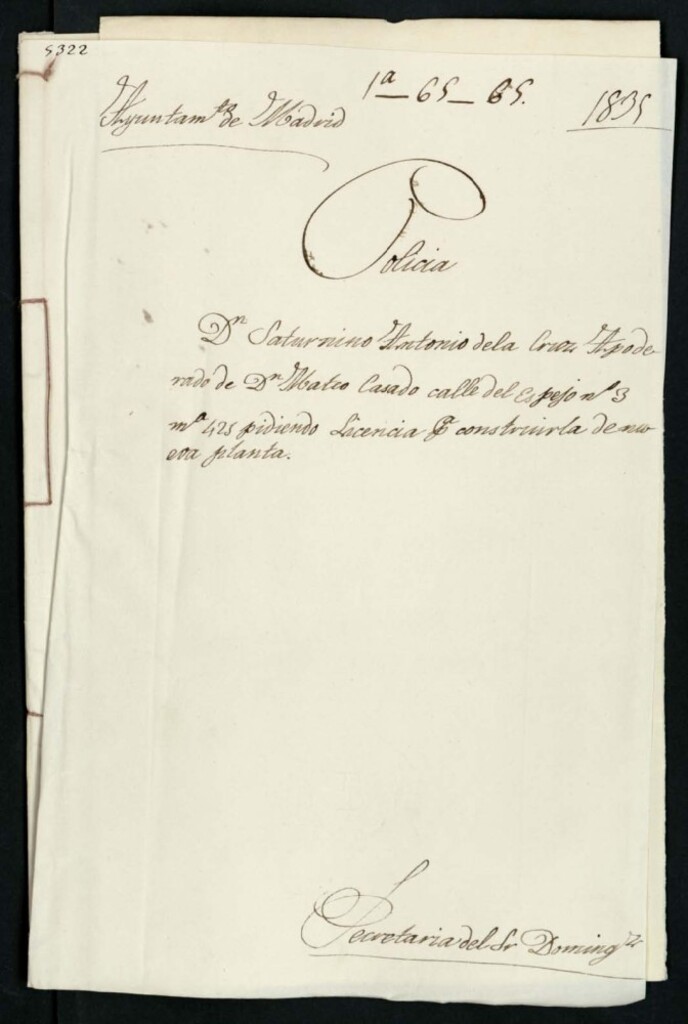 5322
1ª—65—65.
Ayuntam.to de Madrid
1835
Policia
Dn Saturnino Antonio dela Cruz Apode-
rado de Dn Mateo Casado calle del Espejo nº 3
mª 425 pidiendo Licencia pª construirla de nue
eva planta.
Secretaria del Sr Domingz